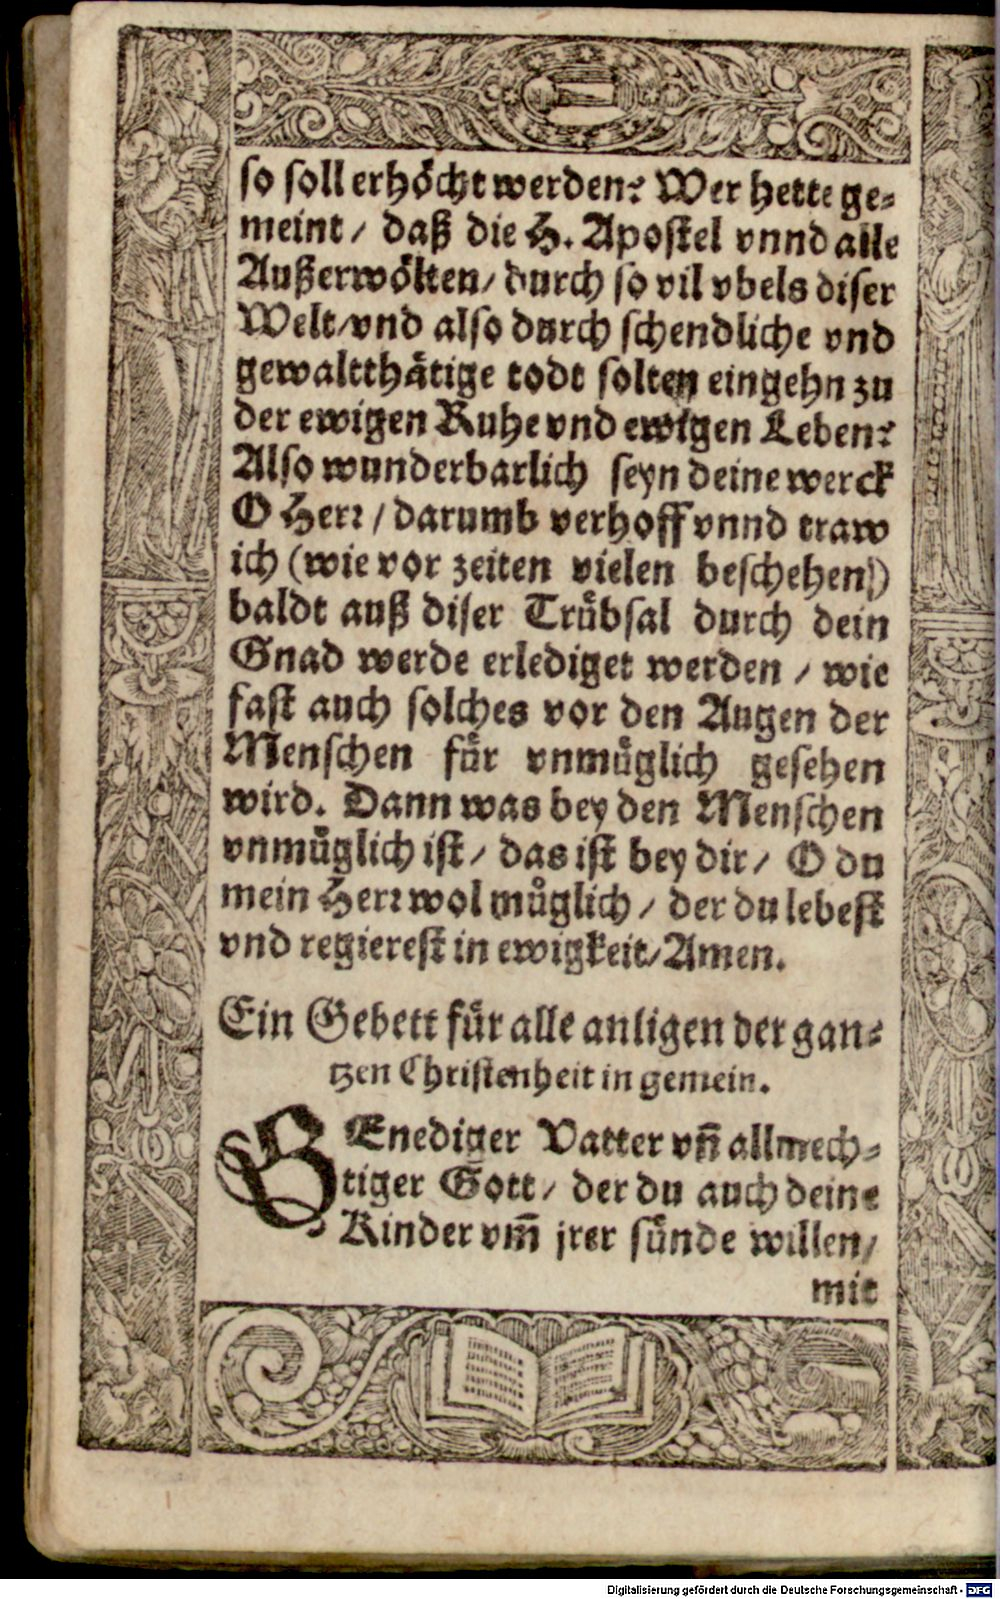 so soll erhöcht werden? Wer hette ge-
meint / daß die H. Apostel vnnd alle
Außerwölten / durch so vil vbels diser
Welt / vnd also durch schendliche vnd
gewaltthätige todt solten eingehn zu
der ewigen Ruhe vnd ewigen Leben?
Also wunderbarlich seyn deine werck
O Herr / darumb verhoff vnnd traw
ich (wie vor zeiten vielen beschehen)
baldt auß diser Trübsal durch dein
Gnad werde erlediget werden / wie
fast auch solches vor den Augen der
Menschen für vnmüglich gesehen
wird. Dann was bey den Menschen
vnmüglich ist / das ist bey dir / O du
mein Herr wol müglich / der du lebest
vnd regierest in ewigkeit / Amen.
Ein Gebett für alle anligen der gan-
tzen Christenheit in gemein.
GEnediger Vatter vñ allmech-
tiger Gott / der du auch deine
Kinder vm̃ jrer sünde willen /
mit
Digitalisierung gefördert durch die Deutsche Forschungsgemeinschaft - DFG